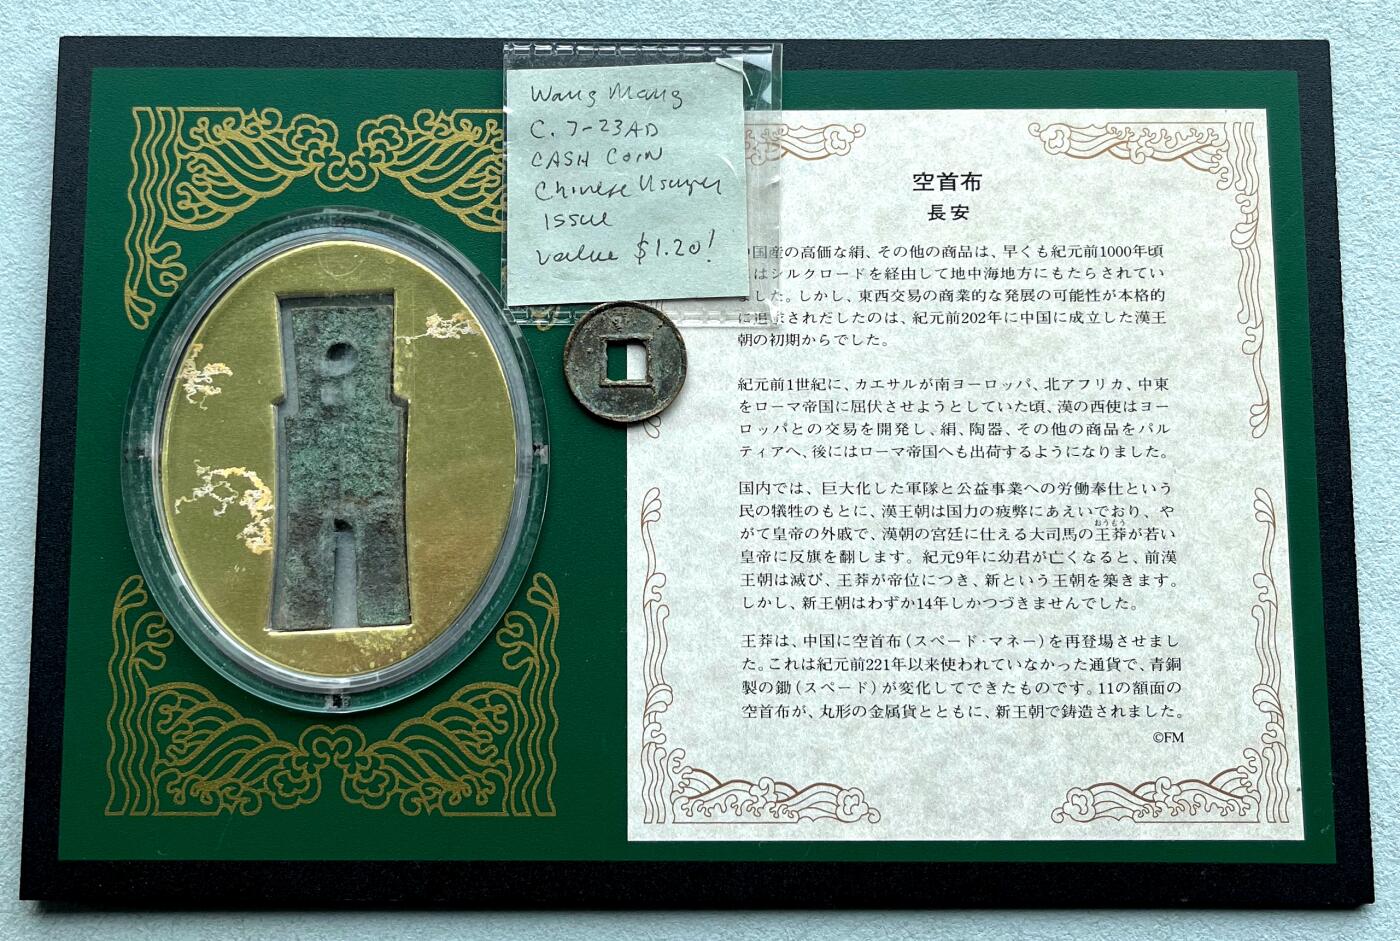 Wang Mang
C. 7-23AD
CASH COIN
Chinese Usurper
Issue
value $1.20!
空首布
長安
国産の高価な絹、その他の商品は、早くも紀元前1000年頃
はシルクロードを経由して地中海地方にもたらされてい
ました。しかし、東西交易の商業的な発展の可能性が本格的
に追求されだしたのは、紀元前202年に中国に成立した漢王
朝の初期からでした。
紀元前1世紀に、カエサルが南ヨーロッパ、北アフリカ、中東
をローマ帝国に屈伏させようとしていた頃、漢の西使はヨー
ロッパとの交易を開発し、絹、陶器、その他の商品をパル
ティアへ、後にはローマ帝国へも出荷するようになりました。
国内では、巨大化した軍隊と公益事業への労働奉仕という
民の犠牲のもとに、漢王朝は国力の疲弊にあえいでおり、や
がて皇帝の外戚で、漢朝の宮廷に仕える大司馬の王莽が若い
おうもう
皇帝に反旗を翻します。紀元9年に幼君が亡くなると、前漢
王朝は滅び、王莽が帝位につき、新という王朝を築きます。
しかし、新王朝はわずか14年しかつづきませんでした。
王莽は、中国に空首布(スペード・マネー)を再登場させまし
た。これは紀元前221年以来使われていなかった通貨で、青銅
製の鋤(スペード)が変化してできたものです。11の額面の
空首布が、丸形の金属貨とともに、新王朝で鋳造されました。
©FM